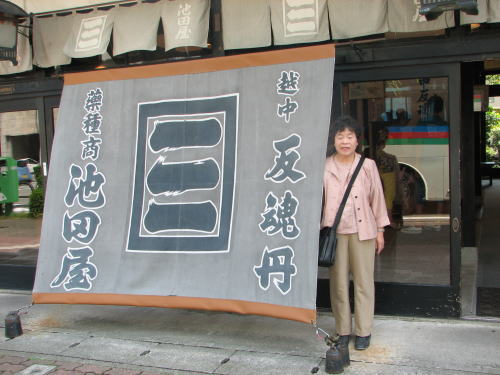 池田屋
越中
反魂丹
三
薬種商
池田屋